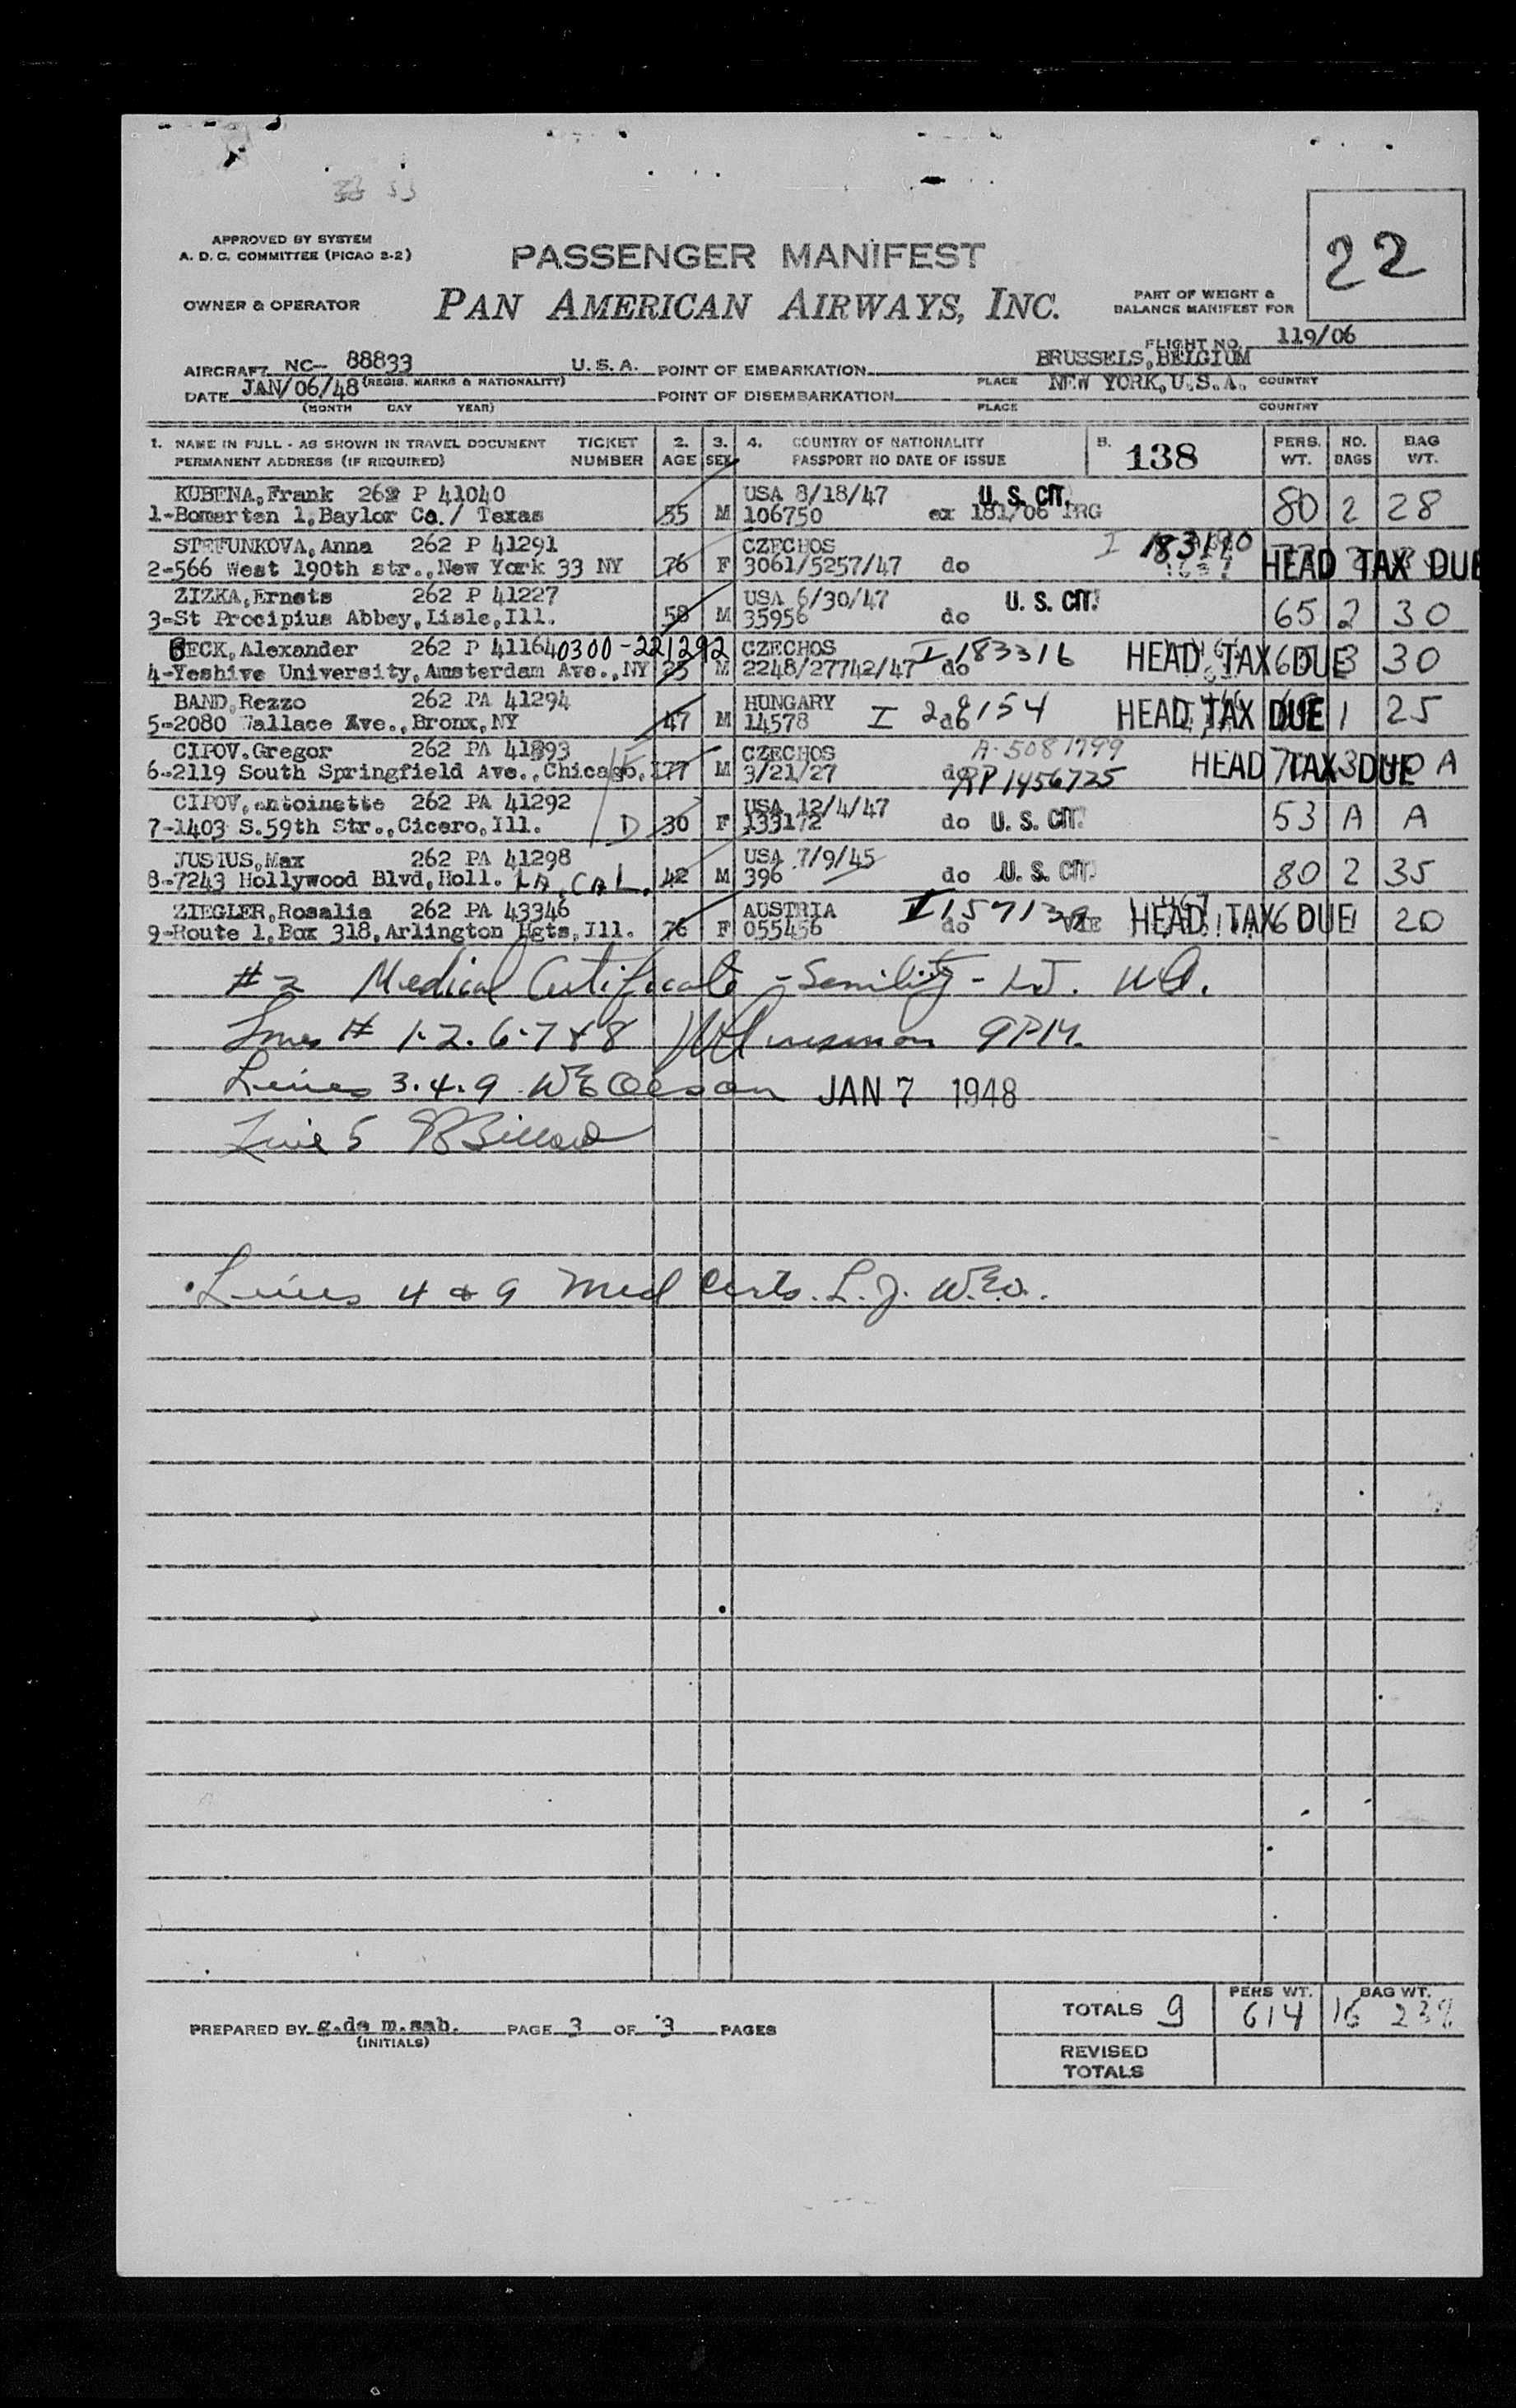 33 33
APPROVED BY SYSTEM
A. D. C. COMMITTEE (PICAO 2-2)
PASSENGER MANIFEST
22
OWNER & OPERATOR
PAN AMERICAN AIRWAYS, INC.
PART OF WEIGHT &
BALANCE MANIFEST FOR
FLIGHT NO. 119/06
AIRCRAFT NC- 88833 U. S. A. POINT OF EMBARKATION BRUSSELS, BELGIUM
(REGIS. MARKS & NATIONALITY) PLACE COUNTRY
DATE JAN/06/48 POINT OF DISEMBARKATION NEW YORK, U.S.A.
(MONTH DAY YEAR) PLACE COUNTRY
1. NAME IN FULL - AS SHOWN IN TRAVEL DOCUMENT TICKET 2. 3. 4. COUNTRY OF NATIONALITY 5. 138 PERS. NO. BAG
PERMANENT ADDRESS (IF REQUIRED) NUMBER AGE SEX PASSPORT NO DATE OF ISSUE WT. BAGS WT.
KUBENA, Frank 262 P 41040 USA 8/18/47 U. S. CIT.
1-Bomarten 1, Baylor Co./ Texas 55 M 106750 ex 181/06 PRG 80 2 28
STEFUNKOVA, Anna 262 P 41291 CZECHOS I
2-566 West 190th str., New York 33 NY 76 F 3061/5257/47 do HEAD TAX DUE
ZIZKA, Ernets 262 P 41227 USA 6/30/47 U. S. CIT.
3-St Procipius Abbey, Lisle, Ill. 58 M 35956 do 65 2 30
BECK, Alexander 262 P 41164 0300-221292 CZECHOS I 183316 HEAD TAX DUE
4-Yeshive University, Amsterdam Ave., NY 25 M 2248/27742/47 do 3 30
BAND, Rezzo 262 PA 41294 HUNGARY I HEAD TAX DUE
5-2080 Wallace Ave., Bronx, NY 47 M 14578 do 1 25
CIPOV. Gregor 262 PA 41893 CZECHOS A-5081799 HEAD TAX DUE
6-2119 South Springfield Ave., Chicago, 77 M 3/21/27 do RP 1456725 3 A
CIPOV, antoinette 262 PA 41292 USA 12/4/47
7-1403 S. 59th Str., Cicero, Ill. D 30 F 133172 do U. S. CIT. 53 A A
JUSTUS, Max 262 PA 41298 USA 7/9/45
8-7243 Hollywood Blvd, Holl. LA, CAL. 42 M 396 do U. S. CIT. 80 2 35
ZIEGLER, Rosalia 262 PA 43346 AUSTRIA I HEAD TAX DUE
9-Route 1, Box 318, Arlington Hgts, Ill. 76 F 055456 do VIE 20
#2 Medical Certificate - Senility -
Lines # 1.2.6.7 & 8 9PM.
Lines 3.4.9 WE Olson JAN 7 1948
Line 5
Lines 4 & 9 Med Certs. L.J. W.E.O.
TOTALS 9 PERS WT. 614 16 BAG WT.
PREPARED BY g.de m.sab. PAGE 3 OF 3 PAGES
(INITIALS)
REVISED
TOTALS